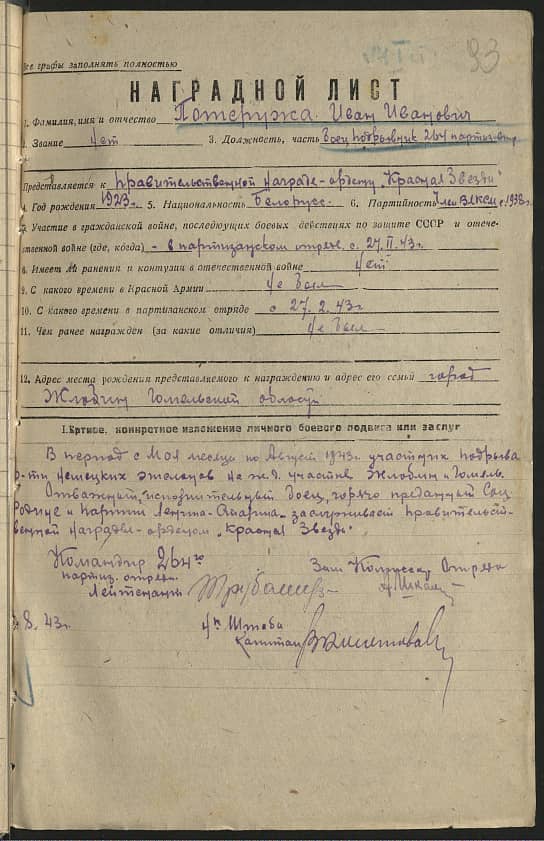 93
Все графы заполнять полностью
НАГРАДНОЙ ЛИСТ
1. Фамилия, имя и отчество Потеружа Иван Иванович
2. Звание нет 3. Должность, часть боец подрывник 264 партиз. отр.
Представляется к правительственной награде - ордену "Красная Звезда"
4. Год рождения 1923 г. 5. Национальность белорусс. 6. Партийность член ВЛКСМ с 1938 г.
7. Участие в гражданской войне, последующих боевых действиях по защите СССР и отече-
ственной войне (где, когда) - в партизанском отряде с 27.II.43 г.
8. Имеет ли ранения и контузии в отечественной войне нет
9. С какого времени в Красной Армии не был
10. С какого времени в партизанском отряде с 27.2.43 г.
11. Чем ранее награжден (за какие отличия) не был
12. Адрес места рождения представляемого к награждению и адрес его семьи город
Жлобин Гомельской области
I. Краткое, конкретное изложение личного боевого подвига или заслуг
В период с Мая месяца по Август 1943 г. участник подрыва
немецких эшелонов на ж.д. участке Жлобин - Гомель.
Отважный, исполнительный боец, горячо преданный Соц.
Родине и партии Ленина-Сталина - заслуживает правительст-
венной награды - орденом "Красная Звезда".
Командир 264го Зам Комиссар Отряда
партиз. отряда
Лейтенант
8.43 г. Нч Штаба
Капитан